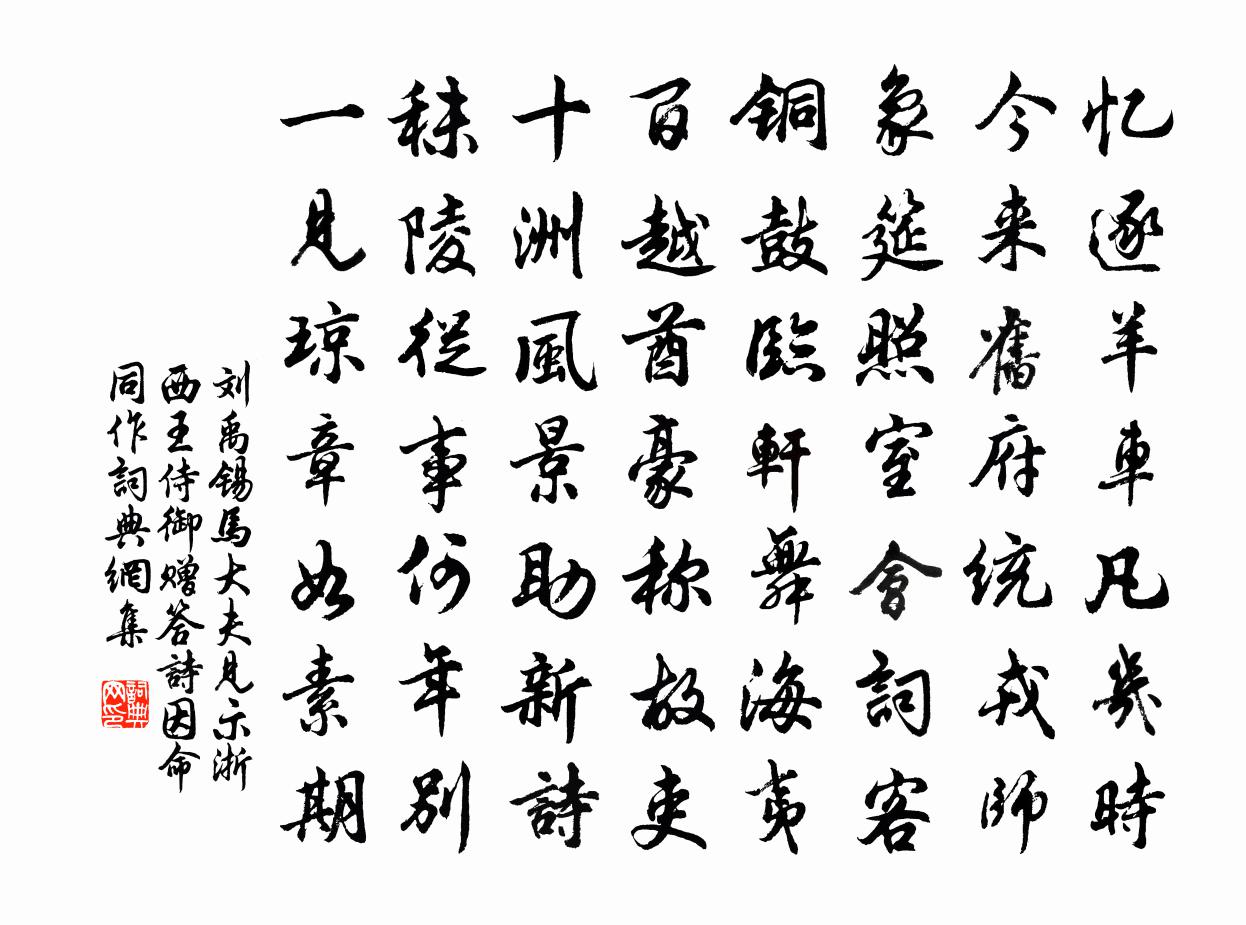 忆逐羊車凡幾時
今来舊府统戎師
象筵照室會詞客
铜鼓臨軒舞海夷
百越酋豪称故吏
十洲風景助新詩
秣陵從事何年别
一見琼章如素期
刘禹锡馬大夫見示浙
西王侍御赠答詩因命
同作詞典網集
詞典網印